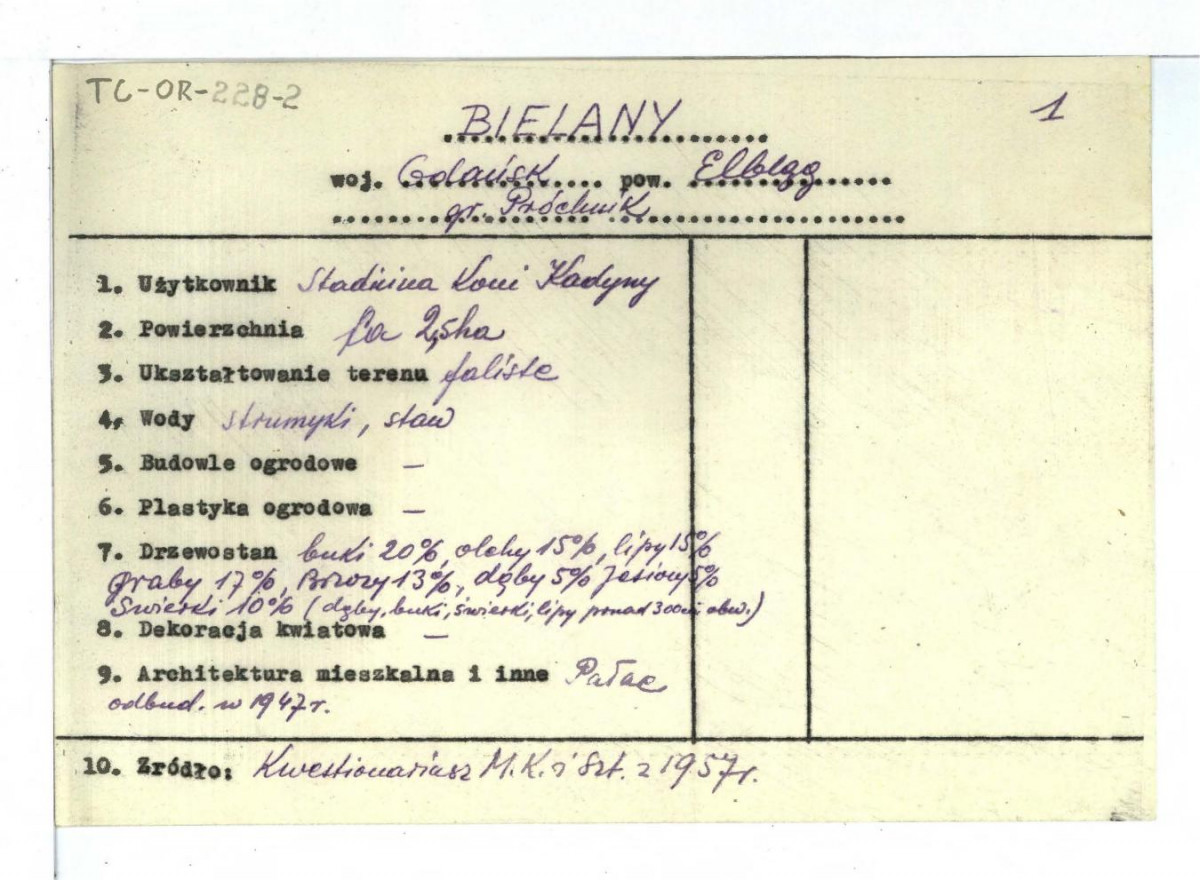 TC-OR-228-2
BIELANY
1
woj. Gdańsk pow. Elbląg
gr. Próchnik
1. Użytkownik Stadnina Koni Kadyny
2. Powierzchnia ca 2,5ha
3. Ukształtowanie terenu faliste
4. Wody strumyki, staw
5. Budowle ogrodowe –
6. Plastyka ogrodowa –
7. Drzewostan buki 20%, olchy 15%, lipy 15%
graby 17%, Brzozy 13%, dęby 5% Jesiony 5%
Świerki 10% (dęby, buki, świerki, lipy ponad 300cm obw.)
8. Dekoracja kwiatowa –
9. Architektura mieszkalna i inne Pałac
odbud. w 1947r.
10. Źródło: Kwestionariusz M.K. i Szt. z 1957r.